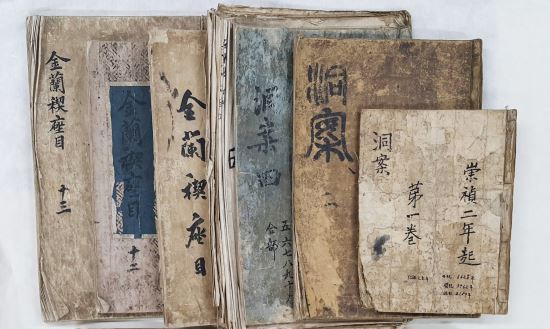 金蘭禊座目
十三
金蘭禊座目
十二
金蘭禊座目
洞案 四
五六七八九十
合部
洞案
二
崇禎二年起
洞案
第一卷